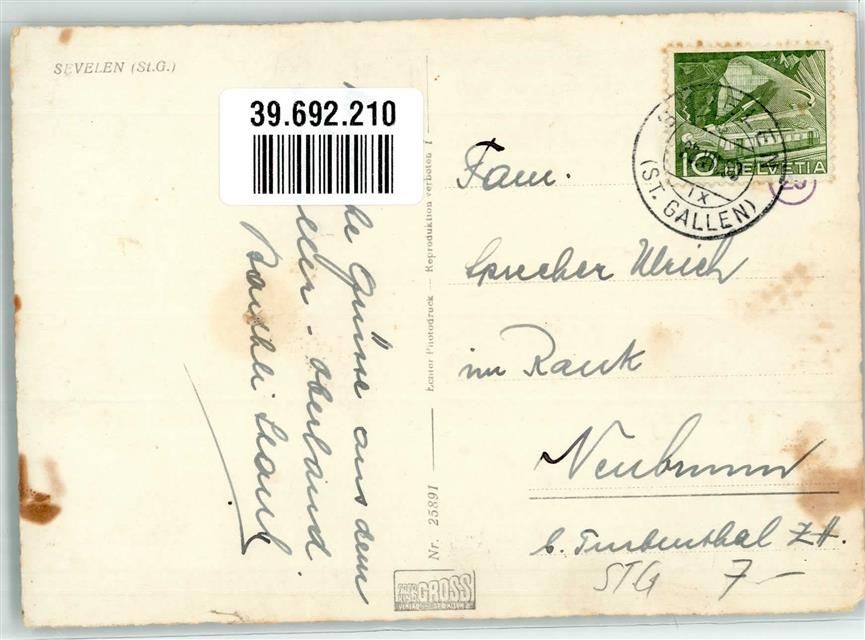 SEVELEN (St.G.)
39.692.210
Grüsse aus dem
oberland
Nr. 25891 Echter Photodruck — Reproduktion verboten
GROSS
10 HELVETIA
(ST. GALLEN)
IX
Fam.
Sprecher Ulrich
im Rank
Neubrunn
b. Turbenthal ZH.
STG 7-